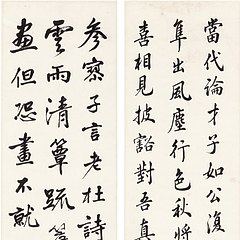 當代論才子如公復
隼出風塵行色秋將
喜相見披豁對吾真
參察子言老杜詩
雲雨清簟疏簾
畫但恐畫不就